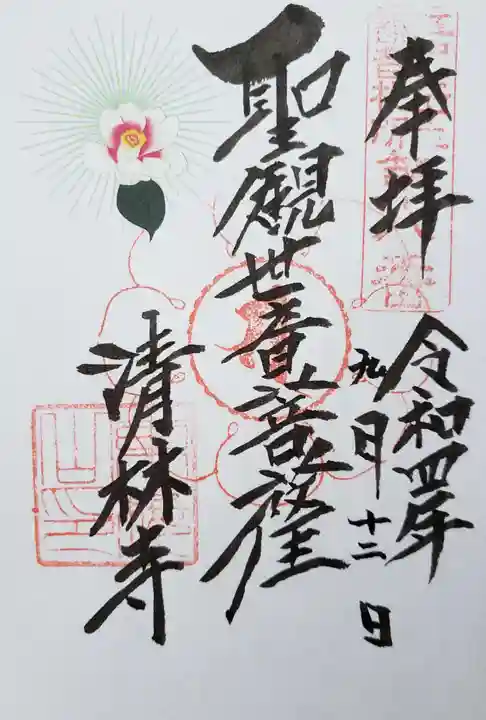 奉拝
令和四年
九月十三日
聖観世音菩薩
清林寺